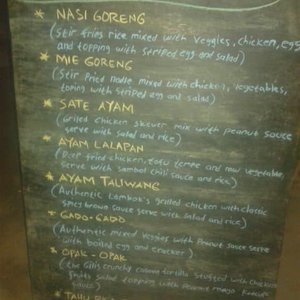 * NASI GORENG
(Stir fries rice mixed with veggies, chicken, eggs
and topping with striped egg and salad)
* MIE GORENG
(Stir fried nodle mixed with chicken, vegetables,
toping with striped egg and salad)
* SATE AYAM
(Grilled chicken skever mix with peanut sauce
serve with salad and rice)
* AYAM LALAPAN
(Deep fried chicken, tofu tempe and raw vegetables
serve with sambal chili sauce and rice)
* AYAM TALIWANG
(Authentic Lombok's grilled chicken with classic
spicy brown sauce serve with salad and rice)
* GADO-GADO
(Authentic mixed veggies with Peanut sauce serve
with boiled egg and cracker)
* OPAK-OPAK
(the Gili's crunchy casava tortilla stuffed with Chicken
salad topping with peanut mayo
* TAHU